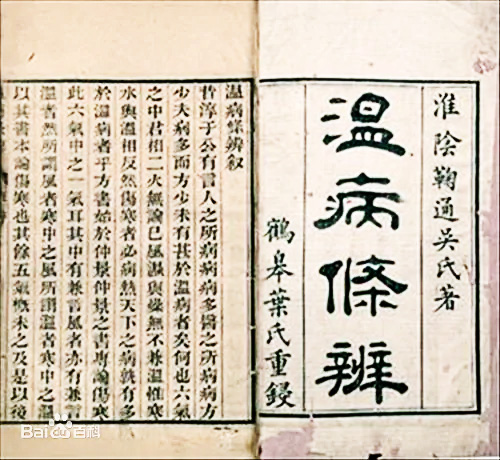 淮陰鞠通吳氏著
温病條辨
鶴皋葉氏重鋟
温病條辨叙
昔淳于公有言人之所病病病多醫之所病病方
少夫病多而方少未有甚於温病者矣何也六氣
之中君相二火無論已風濕與燥無不兼温惟寒
水與温相反然傷寒者必病熱天下之病孰有多
於温病者乎方書始於仲景仲景之書專論傷寒
此六氣中之一氣耳其中有兼言風者亦有兼言
温者然所謂風者寒中之風所謂温者寒中之温
以其書本論傷寒也其餘五氣概未之及是以後
Bai百科